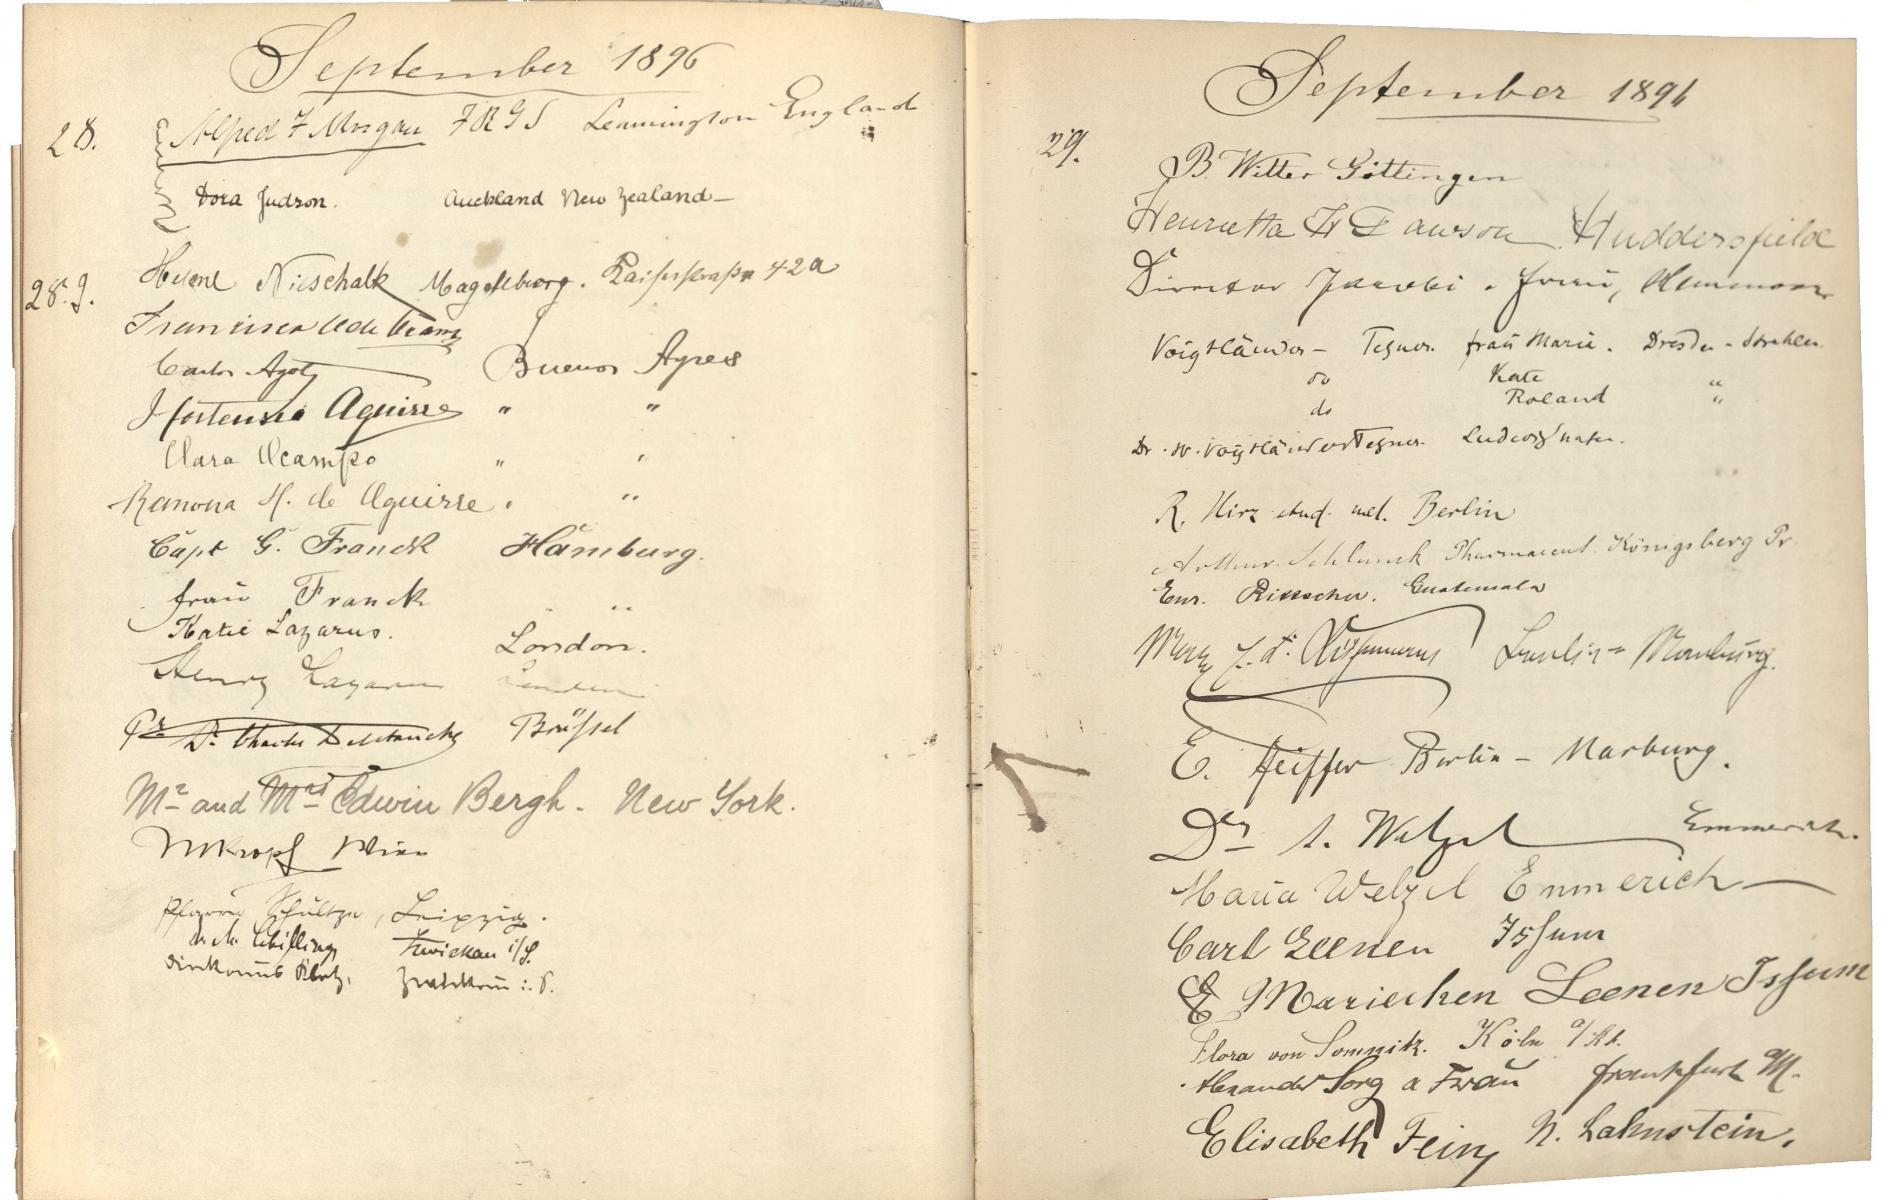 September 1896
28. Alfred F Morgan FRGS Leamington England
Dora Judson. Auckland New Zealand
28.9. Helene Nieschalk Magdeburg. Kaiserstraße 42a
Francisca
Carlos Buenos Ayres
Hortensia Aguirre " "
Clara Ocampo " "
Ramona H. de Aguirre " "
Capt G. Franck Hamburg.
frau Franck "
Katie Lazarus. London.
Henry Lazarus London
Dr. Charles Brüssel
Mr and Mrs Edwin Bergh. New York.
Kropf Wien
Schultze, Leipzig.
Schilling Zwickau i/S.
Zwickau i. S.
September 1896
29.
B. Witter Göttingen
Henrietta H Dawson Huddersfield
Director frau, Hannover
Voigtländer - Tegner. frau Marie. Dresden - Strehlen
do Kate "
do Roland "
Dr. W. Voigtländer Tegner.
R. Hirz stud. med. Berlin
Arthur Schlunck Pharmaceut. Königsberg Pr.
Enr. Guatemala
Berlin = Marburg.
E. Pfeiffer Berlin - Marburg.
Dr A. Welzel Emmerich.
Maria Welzel Emmerich
Carl Leenen Issum
E Mariechen Leenen Issum
Flora von Somnitz. Köln a/Rh.
Alexander Sorg u Frau frankfurt a/M.
Elisabeth Fein N. Lahnstein.